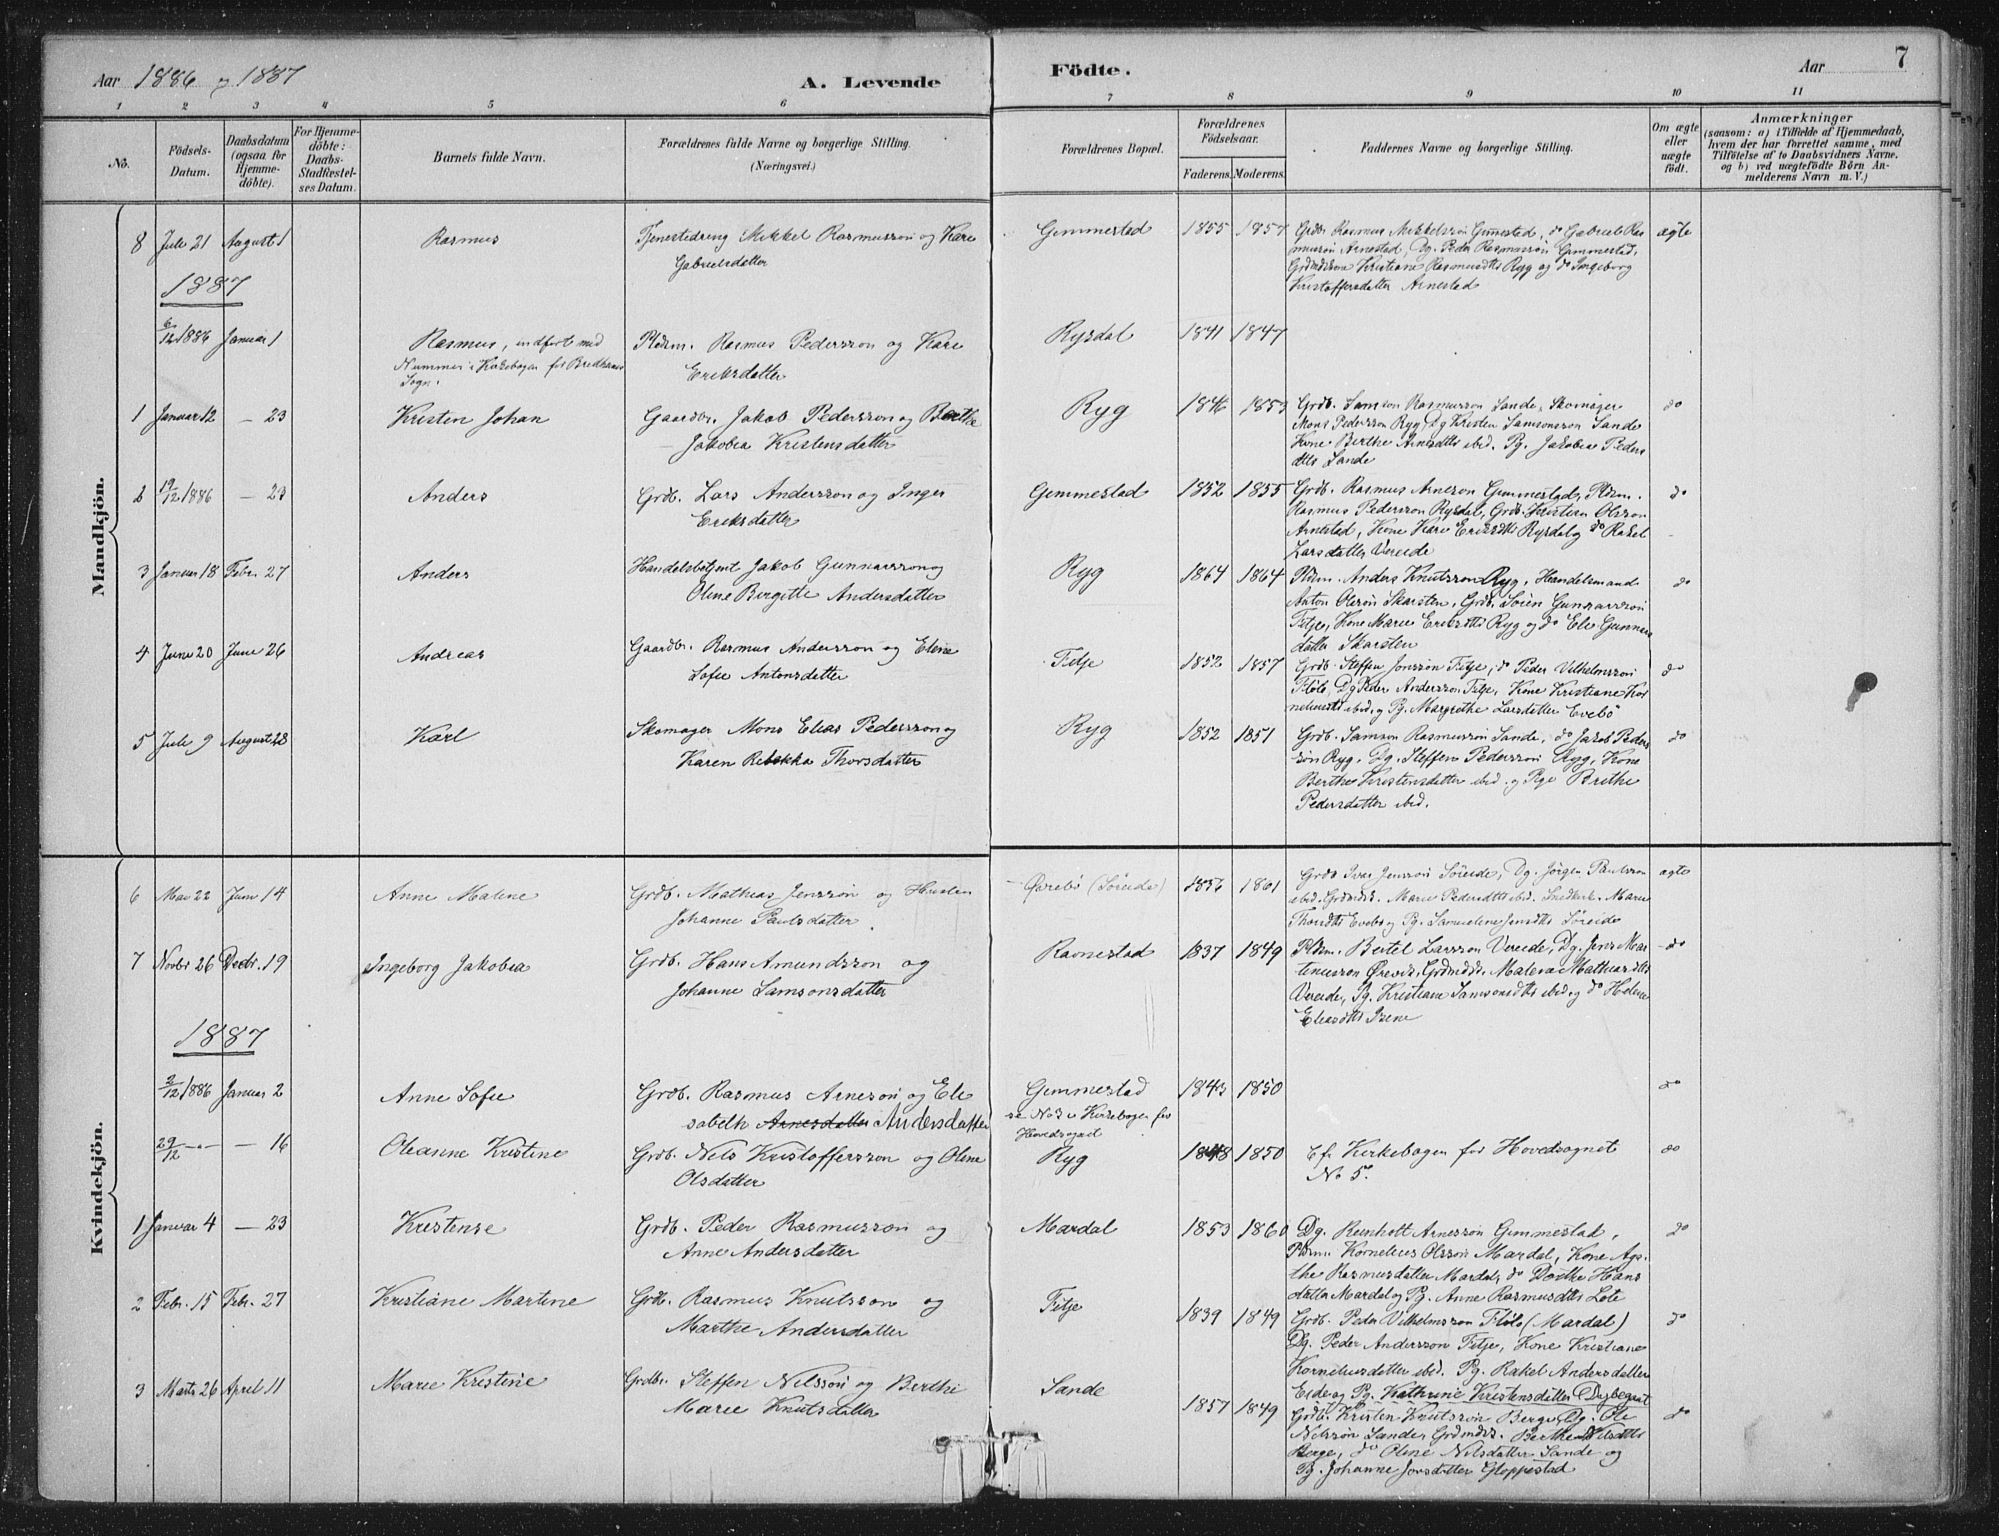 Aar 1886 og 1887
A. Levende
Födte.
Aar
7
1 2 3 4 5 6 7 8 9 10 11
No.
Födsels-
Datum.
Daabsdatum
(ogsaa for
Hjemme-
döbte).
For Hjemme-
döbte:
Daabs-
Stadfæstel-
ses Datum.
Barnets fulde Navn.
Forældrenes fulde Navne og borgerlige Stilling.
(Næringsvei.)
Forældrenes Bopæl.
Forældrenes
Födselsaar.
Faderens. Moderens.
Faddernes Navne og borgerlige Stilling.
Om ægte
eller
uægte
födt.
Anmærkninger
(saasom: a) i Tilfælde af Hjemmedaab,
hvem der har forrettet samme, med
Tilföielse af to Daabsvidners Navne.
og b) ved uægtefödte Börn An-
melderens Navn m. V.)
Mandkjön.
8 Juli 21 August 1 Rasmus Tjenestedreng Mikkel Rasmusson og Kari
Gabrielsdatter
Gemmestad 1855 1857 Grdb. Rasmus Mikkelsson Gimmestad, do Gabriel Ras
musson Arnestad, Dg. Peder Rasmusson Gimmestad,
Grdmdskone Kristiane Rasmusdtts Ryg og do Ingeborg
Kristoffersdatter Arnestad
ægte
1887
6/12 1886 Januar 1 Rasmus, indfört med
Nummer i Kirkebogen for Bredheims
Sogn.
Pldsm. Rasmus Pedersson og Kari
Eriksdatter
Rysdal 1841 1847
1 Januar 12 — 23 Kristen Johan Gaardbr. Jakob Pedersson og Berthe
Jakobea Kristensdatter
Ryg 1846 1853 Grdb. Samson Rasmusson Sande, Skomager
Mons Pedersson Ryg, Dg Kristen Samsonsson Sande
Kone Berthe Arnesdtts ibid. Pg. Jakobea Peders
dtts Sande
do
2 19/12 1886 — 23 Anders Grdb. Lars Andersson og Inger
Eriksdatter
Gemmestad 1852 1855 Grdb. Rasmus Arneson Gemmestad, Pldsm.
Rasmus Pedersson Rysdal, Grdb. Kristen Olsson
Arnestad, Kone Kari Eriksdtts Rysdal og do Rakel
Larsdatter Vereide
do
3 Januar 18 Febr. 27 Anders Handelsbetjent Jakob Gunnarsson og
Oline Birgitte Andersdatter
Ryg 1864 1864 Pldsm. Anders Knutsson Ryg, Handelsmand
Anton Olsson Skarsten, Grdb. Sören Gunnarsson
Fitje, Kone Marie Eriksdtts Ryg og do Eli Gunnars
datter Skarsten
do
4 Juni 20 Juni 26 Andreas Gaardbr. Rasmus Andersson og Eline
Sofie Antonsdatter
Fitje 1852 1857 Grdb. Steffen Jonsson Fitje, do Peder Vilhelmsson
Flölo, Dg Peder Andersson Fitje, Kone Kristiane Kor
neliusdts ibid. og Pg. Margrethe Larsdatter Evebö
do
5 Juli 9 August 28 Karl Skomager Mons Elias Pedersson og
Karen Rebekka Thorsdatter
Ryg 1852 1851 Grdb. Samson Rasmusson Sande, do Jakob Peders
son Ryg, Dg. Steffen Pedersson Ryg, Kone
Berthe Kristensdatter ibid. og Pige Brithe
Pedersdatter ibid.
do
Kvindekjön.
6 Mai 22 Juni 14 Anne Malene Grdb. Mathias Jensson og Hustru
Johanne Paulsdatter.
Örebö (Söreide) 1856 1861 Grdb Ivar Jensson Söreide, Dg. Jörgen Paulsson
ibid. Grdmdsk. Marie Pedersdtts ibid. Snedkerk. Marie
Thorsdtts Evebö og Pg. Samueline Jensdtts Söreide
ægte
7 Novbr 26 Decbr. 19 Ingeborg Jakobea Grdb. Hans Amundsson og
Johanne Samsonsdatter
Ravnestad 1837 1849 Pldsm. Bertel Larsson Vereide, Dg. Jens Mar
tinusson Örevik, Grdmdsk. Malene Mathiasdtts
Vereide, Pg. Kristiane Samsonsdtts ibid og do Helene
Eliasdtts Isene
do
1887
3/12 1886 Januar 2 Anne Sofie Grdb. Rasmus Arneson og Eli
sabeth Arnesdatter Andersdatter
Gemmestad
se No 3 i Kirkebogen for
Hovedsognet
1843 1850 do
29/12 —"— — 16 Oleanne Kristine Grdb. Nils Kristoffersson og Oline
Olsdatter
Ryg 1848 1850 Cf. Kirkebogen for Hovedsognet
No 5.
do
1 Januar 4 — 23 Kristense Grdb. Peder Rasmusson og
Anne Andersdatter
Mardal 1853 1860 Dg. Reinholt Arnesson Gimmestad,
Pldsm. Kornelius Olsson Mardal, Kone Aga
the Rasmusdatter Mardal, do Dorthe Hans
datter Mardal og Pg. Anne Rasmusdtts Lote
do
2 Febr. 15 Febr. 27 Kristiane Martine Grdb. Rasmus Knutsson og
Marthe Andersdatter
Fitje 1839 1849 Grdb. Peder Vilhelmsson Flölo (Mardal)
Dg. Peder Andersson Fitje, Kone Kristiane
Korneliusdatter ibid. Pg. Rakel Andersdatter
Eide og Pg. Kathrine Kristensdatter Dybegrat
do
3 Marts 26 April 11 Marie Kristine Grdbr. Steffen Nilsson og Berthe
Marie Knutsdatter
Sande 1857 1849 Grdb. Kristen Knutsson Berge, Dg. Ole
Nilsson Sande, Grdmdsk. Berthe Nilsdtts
Berge, do Oline Nilsdatter Sande og
Pg. Johanne Jonsdatter Gloppestad
do